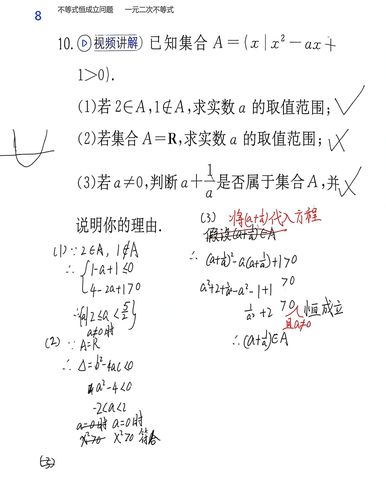 不等式恒成立问题 一元二次不等式
8
10. 视频讲解 已知集合 A={x|x²-ax+
1>0}.
(1)若 2∈A,1∉A,求实数 a 的取值范围;
(2)若集合 A=R,求实数 a 的取值范围;
(3)若 a≠0,判断 a+1/a 是否属于集合 A,并
说明你的理由.
(1)∵2∈A, 1∉A
∴{1-a+1≤0
4-2a+1>0
∴{a|2≤a<5/2}
a≠0时
(2) ∵A=R
∴Δ=b²-4ac<0
a²-4<0
-2<a<2
a=0时 a=0时
x²>0 x²>0 符合
(3)
(3) 将(a+1/a)代入方程
假设(a+1/a)∈A
∴(a+1/a)²-a(a+1/a)+1>0
a²+2+1/a²-a²-1+1>0
1/a²+2>0 恒成立
且a≠0
∴(a+1/a)∈A